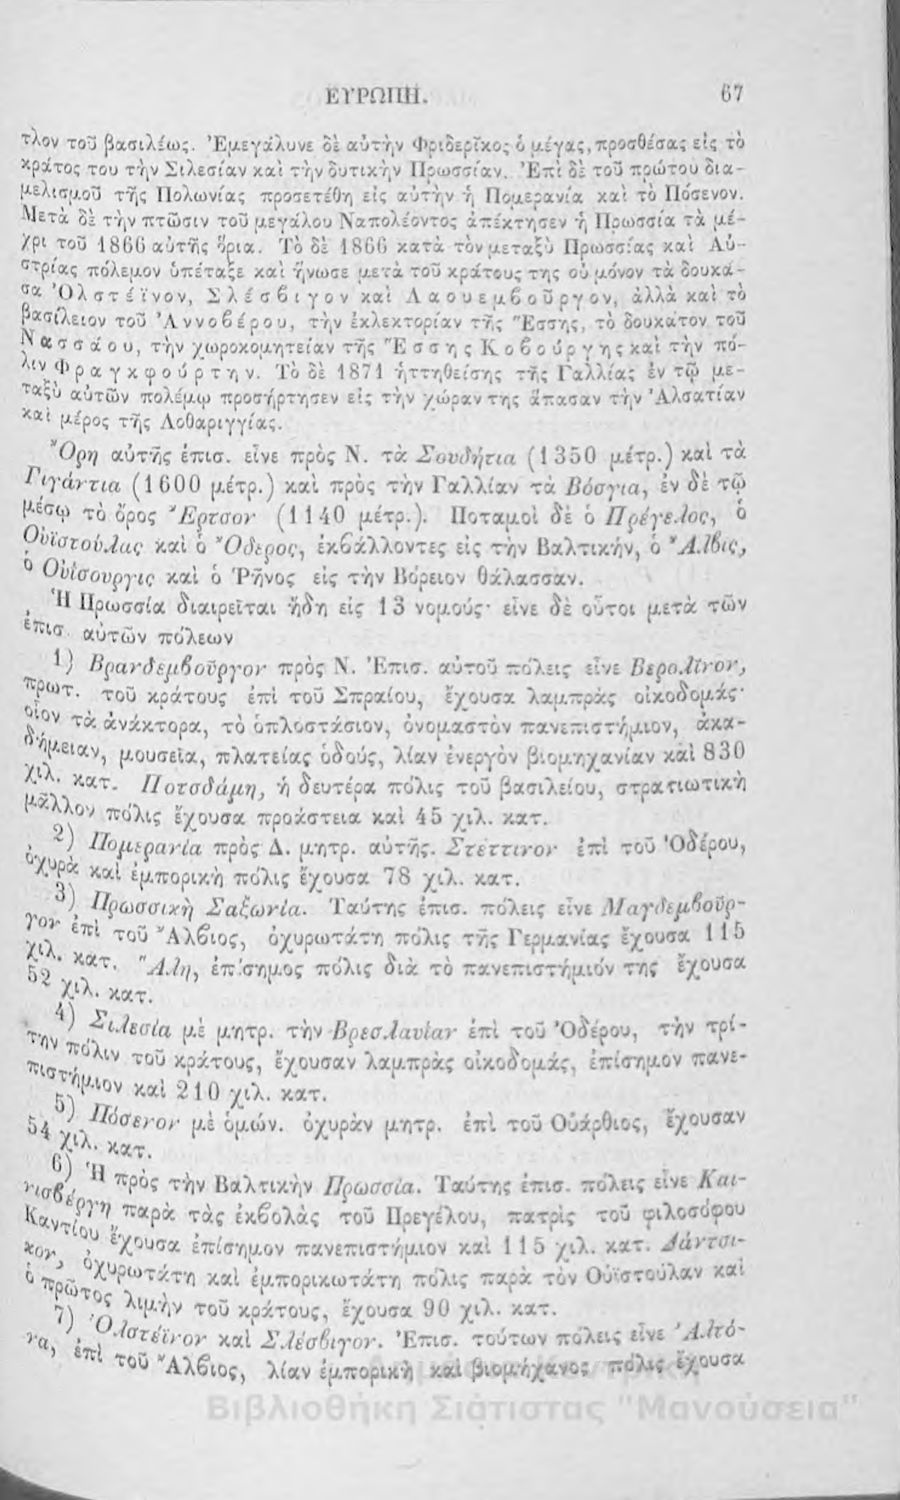 ΕΥΡΩΠΗ. 67
τλον τοῦ βασιλέως. Ἐμεγάλυνε δὲ αὐτὴν Φριδερῖκος ὁ μέγας, προσθέσας εἰς τὸ
κράτος του τὴν Σιλεσίαν καὶ τὴν δυτικὴν Πρωσσίαν. Ἐπὶ δὲ τοῦ πρώτου δια-
μελισμοῦ τῆς Πολωνίας προσετέθη εἰς αὐτὴν ἡ Πομερανία καὶ τὸ Πόσενον.
Μετὰ δὲ τὴν πτῶσιν τοῦ μεγάλου Ναπολέοντος ἀπέκτησεν ἡ Πρωσσία τὰ μέ-
χρι τοῦ 1866 αὐτῆς ὅρια. Τὸ δὲ 1866 κατὰ τὸν μεταξὺ Πρωσσίας καὶ Αὐ-
στρίας πόλεμον ὑπέταξε καὶ ἥνωσε μετὰ τοῦ κράτους της οὐ μόνον τὰ δουκά-
σα Ὀλστέϊνον, Σλέσβιγον καὶ Λαουεμβοῦργον, ἀλλὰ καὶ τὸ
βασίλειον τοῦ Ἀννοβέρου, τὴν ἐκλεκτορίαν τῆς Ἕσσης, τὸ δουκάτον τοῦ
Νασσάου, τὴν χωροκομητείαν τῆς Ἕσσης Κοβούργης καὶ τὴν πό-
λιν Φραγκφούρτην. Τὸ δὲ 1871 ἡττηθείσης τῆς Γαλλίας ἐν τῷ με-
ταξὺ αὐτῶν πολέμῳ προσήρτησεν εἰς τὴν χώραν της ἅπασαν τὴν Ἀλσατίαν
καὶ μέρος τῆς Λοθαριγγίας.
Ὄρη αὐτῆς ἐπισ. εἶνε πρὸς Ν. τὰ Σουδήτια (1350 μέτρ.) καὶ τὰ
Γιγάντια (1600 μέτρ.) καὶ πρὸς τὴν Γαλλίαν τὰ Βόσγια, ἐν δὲ τῷ
μέσῳ τὸ ὄρος Ἔρτσον (1140 μέτρ.). Ποταμοὶ δὲ ὁ Πρέγελος, ὁ
Οὐϊστούλας καὶ ὁ Ὄδερος, ἐκβάλλοντες εἰς τὴν Βαλτικήν, ὁ Ἄλβις,
ὁ Οὐΐσουργις καὶ ὁ Ῥῆνος εἰς τὴν Βόρειον θάλασσαν.
Ἡ Πρωσσία διαιρεῖται ἤδη εἰς 13 νομούς· εἶνε δὲ οὗτοι μετὰ τῶν
ἐπισ. αὐτῶν πόλεων
1) Βρανδεμβοῦργον πρὸς Ν. Ἐπισ. αὐτοῦ πόλεις εἶνε Βερολῖνον,
πρωτ. τοῦ κράτους ἐπὶ τοῦ Σπραίου, ἔχουσα λαμπρὰς οἰκοδομάς·
οἷον τὰ ἀνάκτορα, τὸ ὁπλοστάσιον, ὀνομαστὸν πανεπιστήμιον, ἀκα-
δήμειαν, μουσεῖα, πλατείας ὁδούς, λίαν ἐνεργὸν βιομηχανίαν καὶ 830
χιλ. κατ. Ποτσδάμη, ἡ δευτέρα πόλις τοῦ βασιλείου, στρατιωτικὴ
μᾶλλον πόλις ἔχουσα προάστεια καὶ 45 χιλ. κατ.
2) Πομερανία πρὸς Δ. μητρ. αὐτῆς. Στέττινον ἐπὶ τοῦ Ὀδέρου,
ὀχυρὰ καὶ ἐμπορικὴ πόλις ἔχουσα 78 χιλ. κατ.
3) Πρωσσικὴ Σαξωνία. Ταύτης ἐπισ. πόλεις εἶνε Μαγδεμβοῦρ-
γον ἐπὶ τοῦ Ἄλβιος, ὀχυρωτάτη πόλις τῆς Γερμανίας ἔχουσα 115
χιλ. κατ. Ἄλη, ἐπίσημος πόλις διὰ τὸ πανεπιστήμιόν της ἔχουσα
52 χιλ. κατ.
4) Σιλεσία μὲ μητρ. τὴν Βρεσλαυίαν ἐπὶ τοῦ Ὀδέρου, τὴν τρί-
την πόλιν τοῦ κράτους, ἔχουσαν λαμπρὰς οἰκοδομάς, ἐπίσημον πανε-
πιστήμιον καὶ 210 χιλ. κατ.
5) Πόσενον μὲ ὁμών. ὀχυρὰν μητρ. ἐπὶ τοῦ Οὐάρθιος, ἔχουσαν
54 χιλ. κατ.
6) Ἡ πρὸς τὴν Βαλτικὴν Πρωσσία. Ταύτης ἐπισ. πόλεις εἶνε Και-
νισβέργη παρὰ τὰς ἐκβολὰς τοῦ Πρεγέλου, πατρὶς τοῦ φιλοσόφου
Καντίου ἔχουσα ἐπίσημον πανεπιστήμιον καὶ 115 χιλ. κατ. Δάντσι-
κον, ὀχυρωτάτη καὶ ἐμπορικωτάτη πόλις παρὰ τὸν Οὐϊστούλαν καὶ
ὁ πρῶτος λιμὴν τοῦ κράτους, ἔχουσα 90 χιλ. κατ.
7) Ὀλστέϊνον καὶ Σλέσβιγον. Ἐπισ. τούτων πόλεις εἶνε Ἀλτό-
να, ἐπὶ τοῦ Ἄλβιος, λίαν ἐμπορικὴ καὶ βιομήχανος πόλις ἔχουσα
Βιβλιοθήκη Σιάτιστας "Μανούσεια"